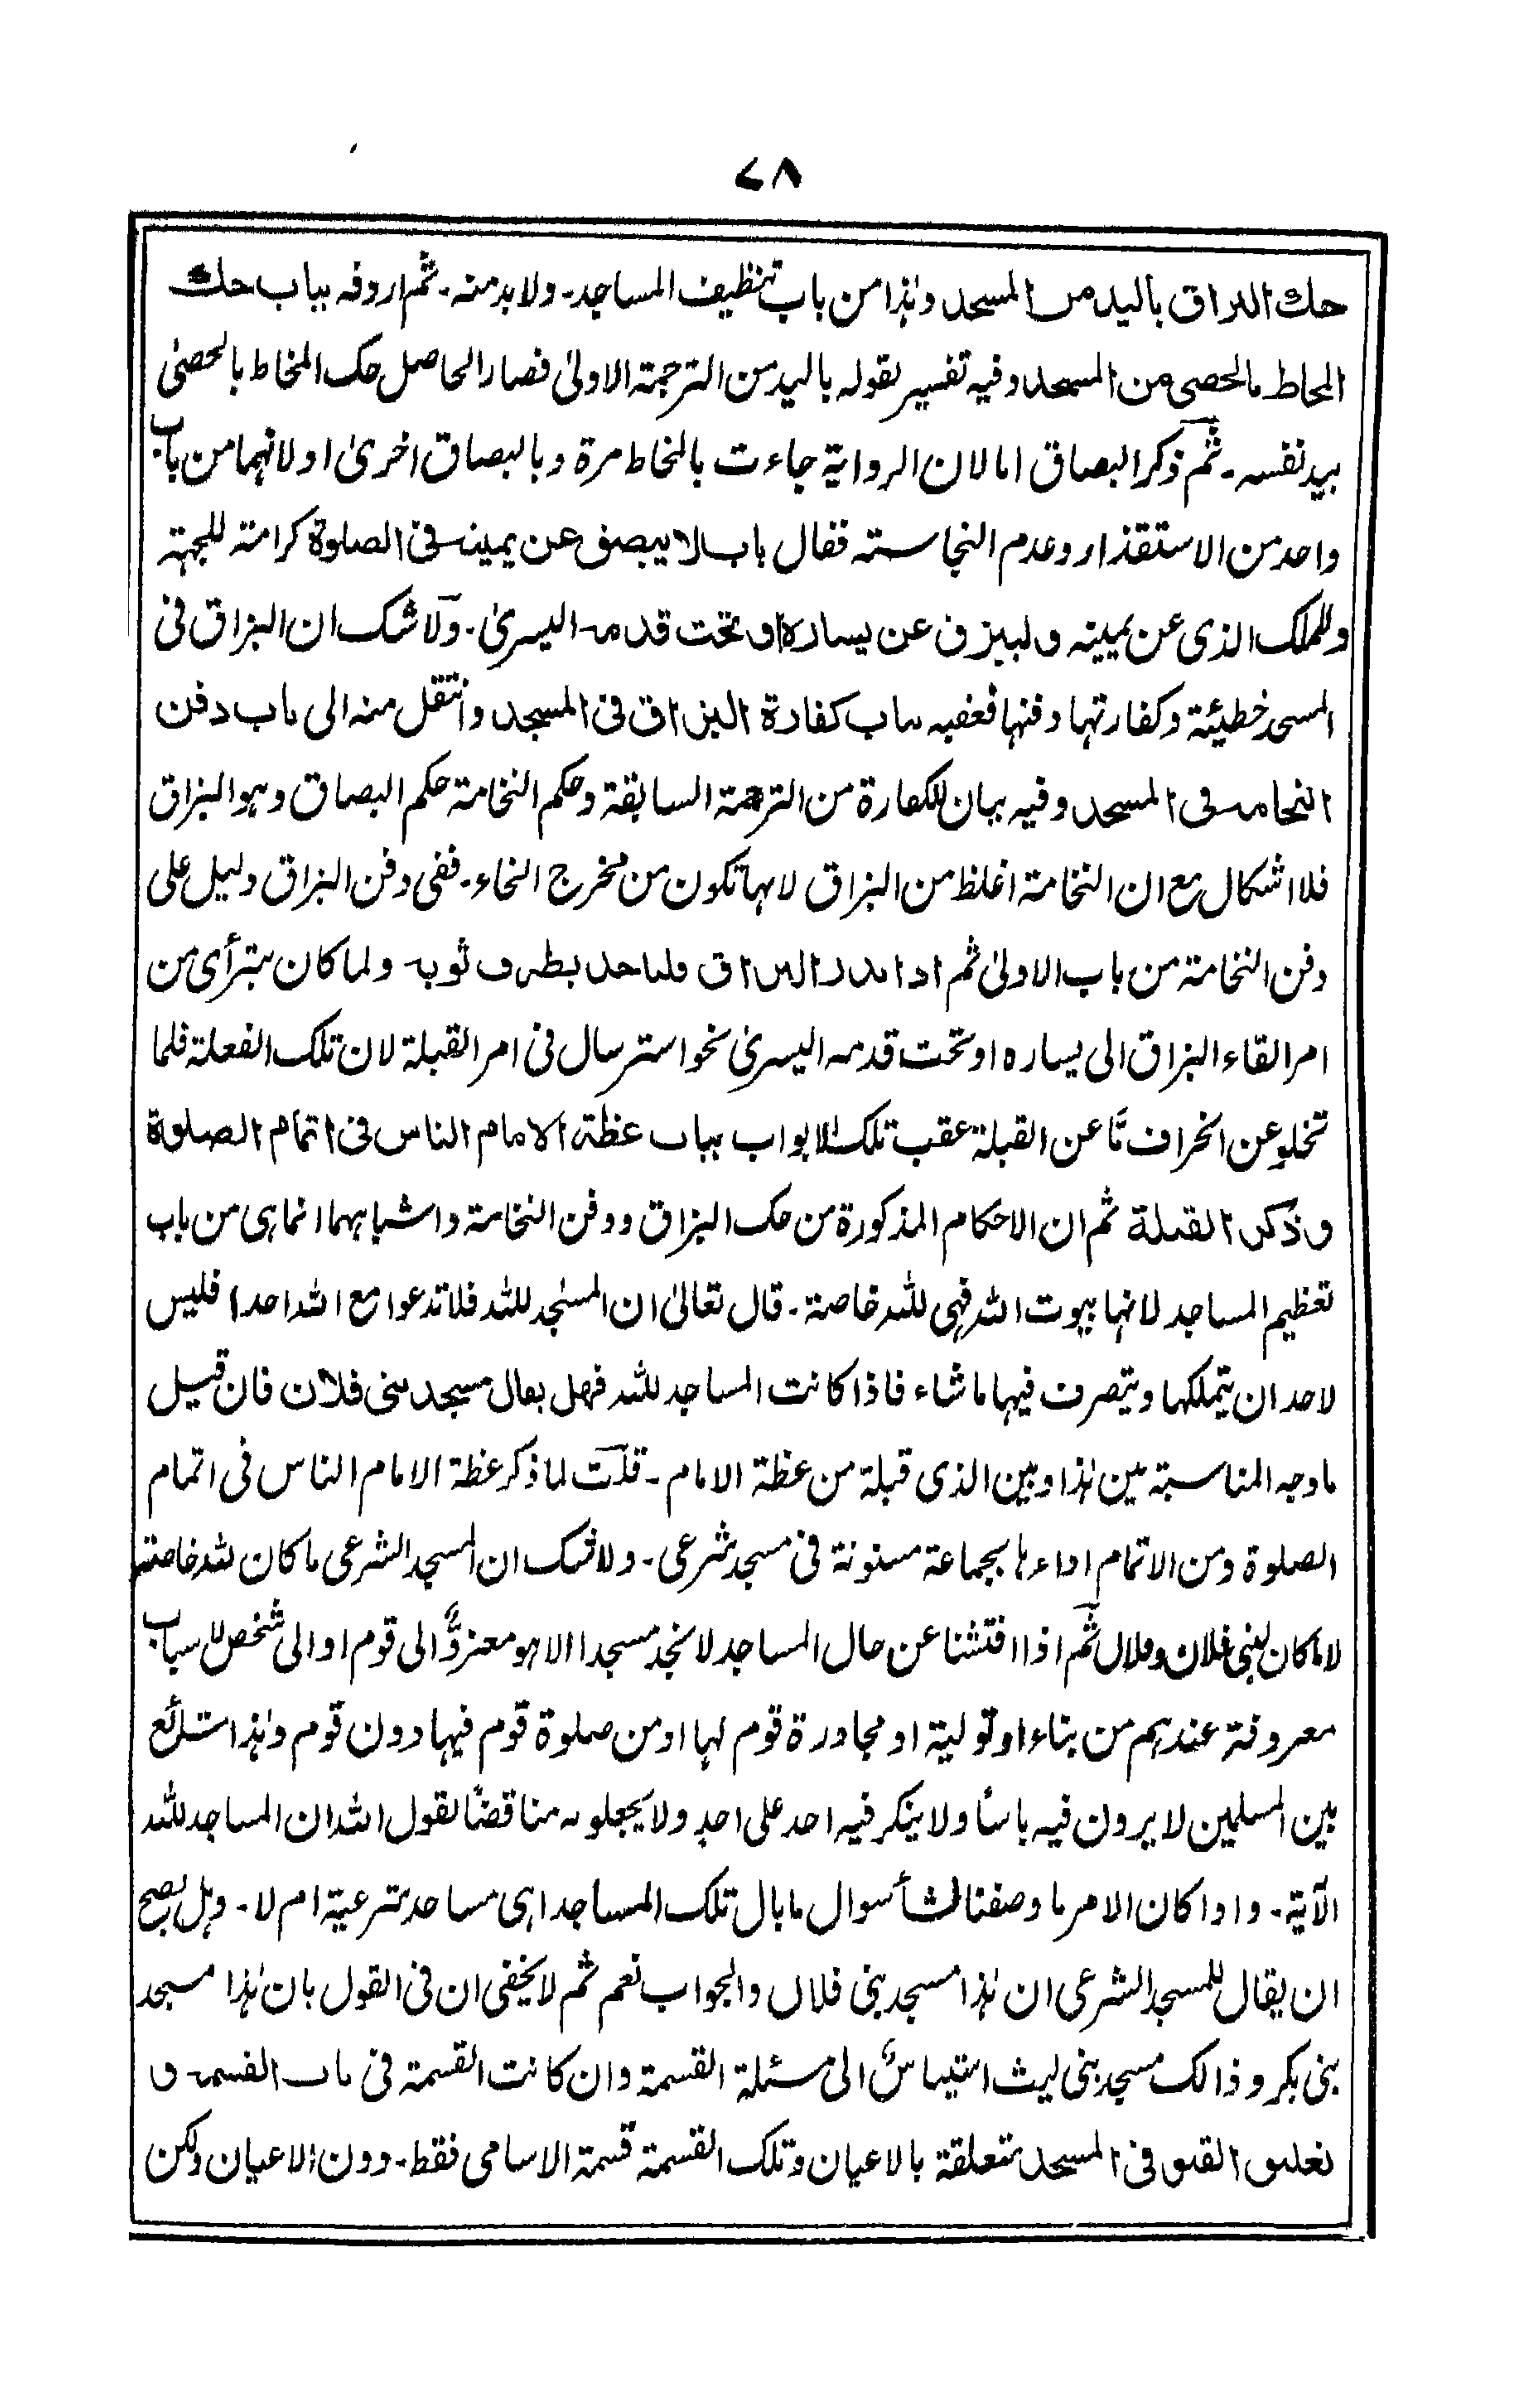 ٧٨
حك البزاق باليد من المسجد وہٰذا من باب تنظيف المساجد۔ ولا بد منہ۔ ثم اردفہ بباب حك
المخاط بالحصى من المسجد وفيہ تفسير لقولہ باليد من الترجمۃ الاولیٰ فصار الحاصل حك المخاط بالحصیٰ
بيد نفسہ۔ ثم ذكر البصاق اما لان الروايۃ جاءت بالمخاط مرة وبالبصاق اخریٰ او لانهما من باب
واحد من الاستقذار وعدم النجاستہ فقال باب لا يبصق عن يمينہ فی الصلوة كرامتہ للجهتہ
وللملك الذی عن يمينہ وليبزق عن يساره او تحت قدمہ اليسریٰ۔ ولا شك ان البزاق فی
المسجد خطيئۃ وكفارتها دفنها فعقبہ بباب كفارة البزاق فی المسجد وانتقل منہ الى باب دفن
النخامۃ فی المسجد وفيہ بيان للكفارة من الترجمۃ السابقۃ وحكم النخامۃ حكم البصاق وہو البزاق
فلا اشكال مع ان النخامۃ اغلظ من البزاق لانها تكون من مخرج الخاء۔ ففی دفن البزاق دليل على
دفن النخامۃ من باب الاولیٰ ثم اذا بدره البزاق فلياخذ بطرف ثوبہ ولما كان يترأى من
امر القاء البزاق الى يساره او تحت قدمہ اليسریٰ نحو استرسال فی امر القبلۃ لان تلك الفعلۃ قلما
تخلو عن انحراف مّا عن القبلۃ عقب تلك الابواب بباب عظۃ الامام الناس فی اتمام الصلوة
وذكر القبلة ثم ان الاحكام المذكورة من حك البزاق ودفن النخامۃ واشباہهما انما ہی من باب
تعظيم المساجد لانها بيوت اللہ فہی للہ خاصۃ۔ قال تعالیٰ ان المسٰجد للہ فلا تدعوا مع اللہ احدا) فليس
لاحد ان يتملكها ويتصرف فيها ما شاء فاذا كانت المساجد للہ فهل يقال مسجد بنی فلان فان قيل
ما وجہ المناسبۃ بين ہٰذا وبين الذی قبلۃ من عظۃ الامام۔ قلت لما ذكر عظۃ الامام الناس فی اتمام
الصلوة ومن الاتمام اداءہا بجماعۃ مسنونۃ فی مسجد شرعی۔ ولا شك ان المسجد الشرعی ما كان للہ خاصتہ
لا ما كان لبنی فلان وفلان ثم اذا افتشنا عن حال المساجد لا نجد مسجدا الا ہو معزوٌّ الى قوم او الى شخص لاسباب
معروفۃ عندہم من بناء او توليۃ او مجاورة قوم لها او من صلوة قوم فيها دون قوم وہٰذا شائع
بين المسلمين لا يرون فيہ باسًا ولا ينكر فيہ احد على احدٍ ولا يجعلونہ مناقضًا لقول اللہ ان المساجد للہ
الآيۃ۔ واذا كان الامر ما وصفنا نشأ سوال ما بال تلك المساجد اہی مساجد شرعيۃ ام لا۔ وہل يصح
ان يقال للمسجد الشرعی ان ہٰذا مسجد بنی فلان والجواب نعم ثم لا يخفى ان فی القول بان ہٰذا مسجد
بنی بكر وذالك مسجد بنی ليث استيناسٌ الى مسئلۃ القسمۃ وان كانت القسمۃ فی باب القسمۃ و
تعليق القنو فی المسجد متعلقۃ بالاعيان وتلك القسمۃ قسمۃ الاسامی فقط۔ دون الاعيان ولكن